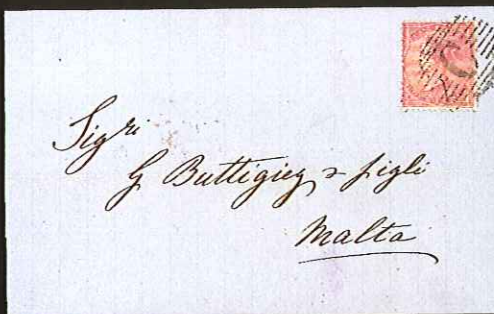 Sigri
G Buttigieg & figli
Malta